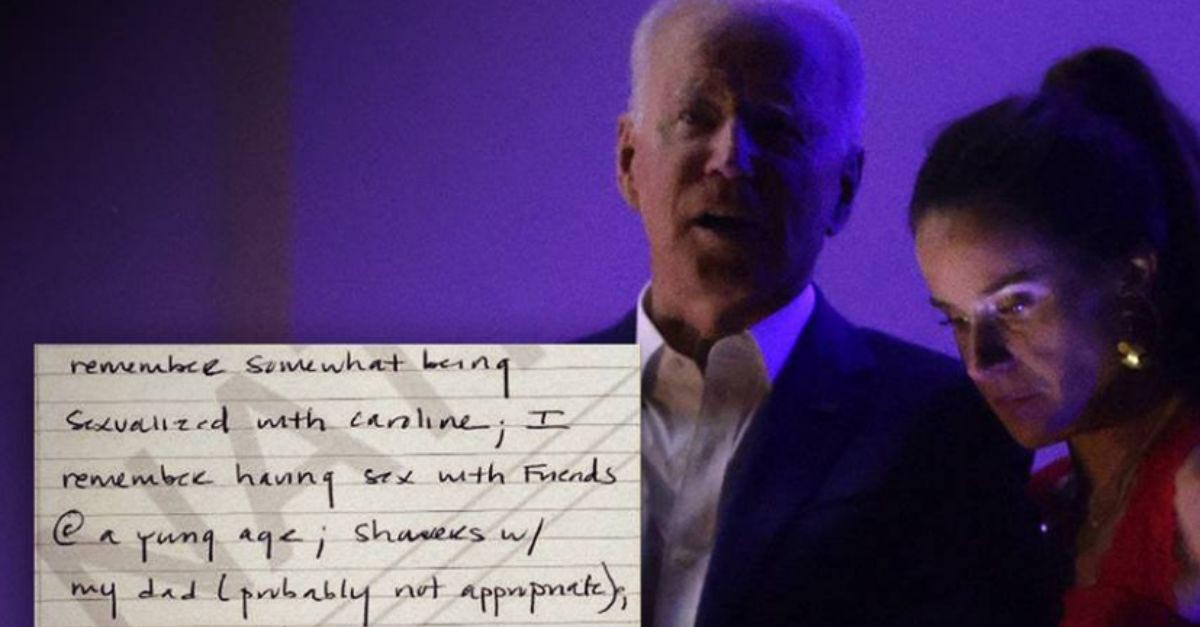 remember somewhat being
sexualized with caroline; I
remember having sex with Friends
@ a young age; showers w/
my dad (probably not appropriate);